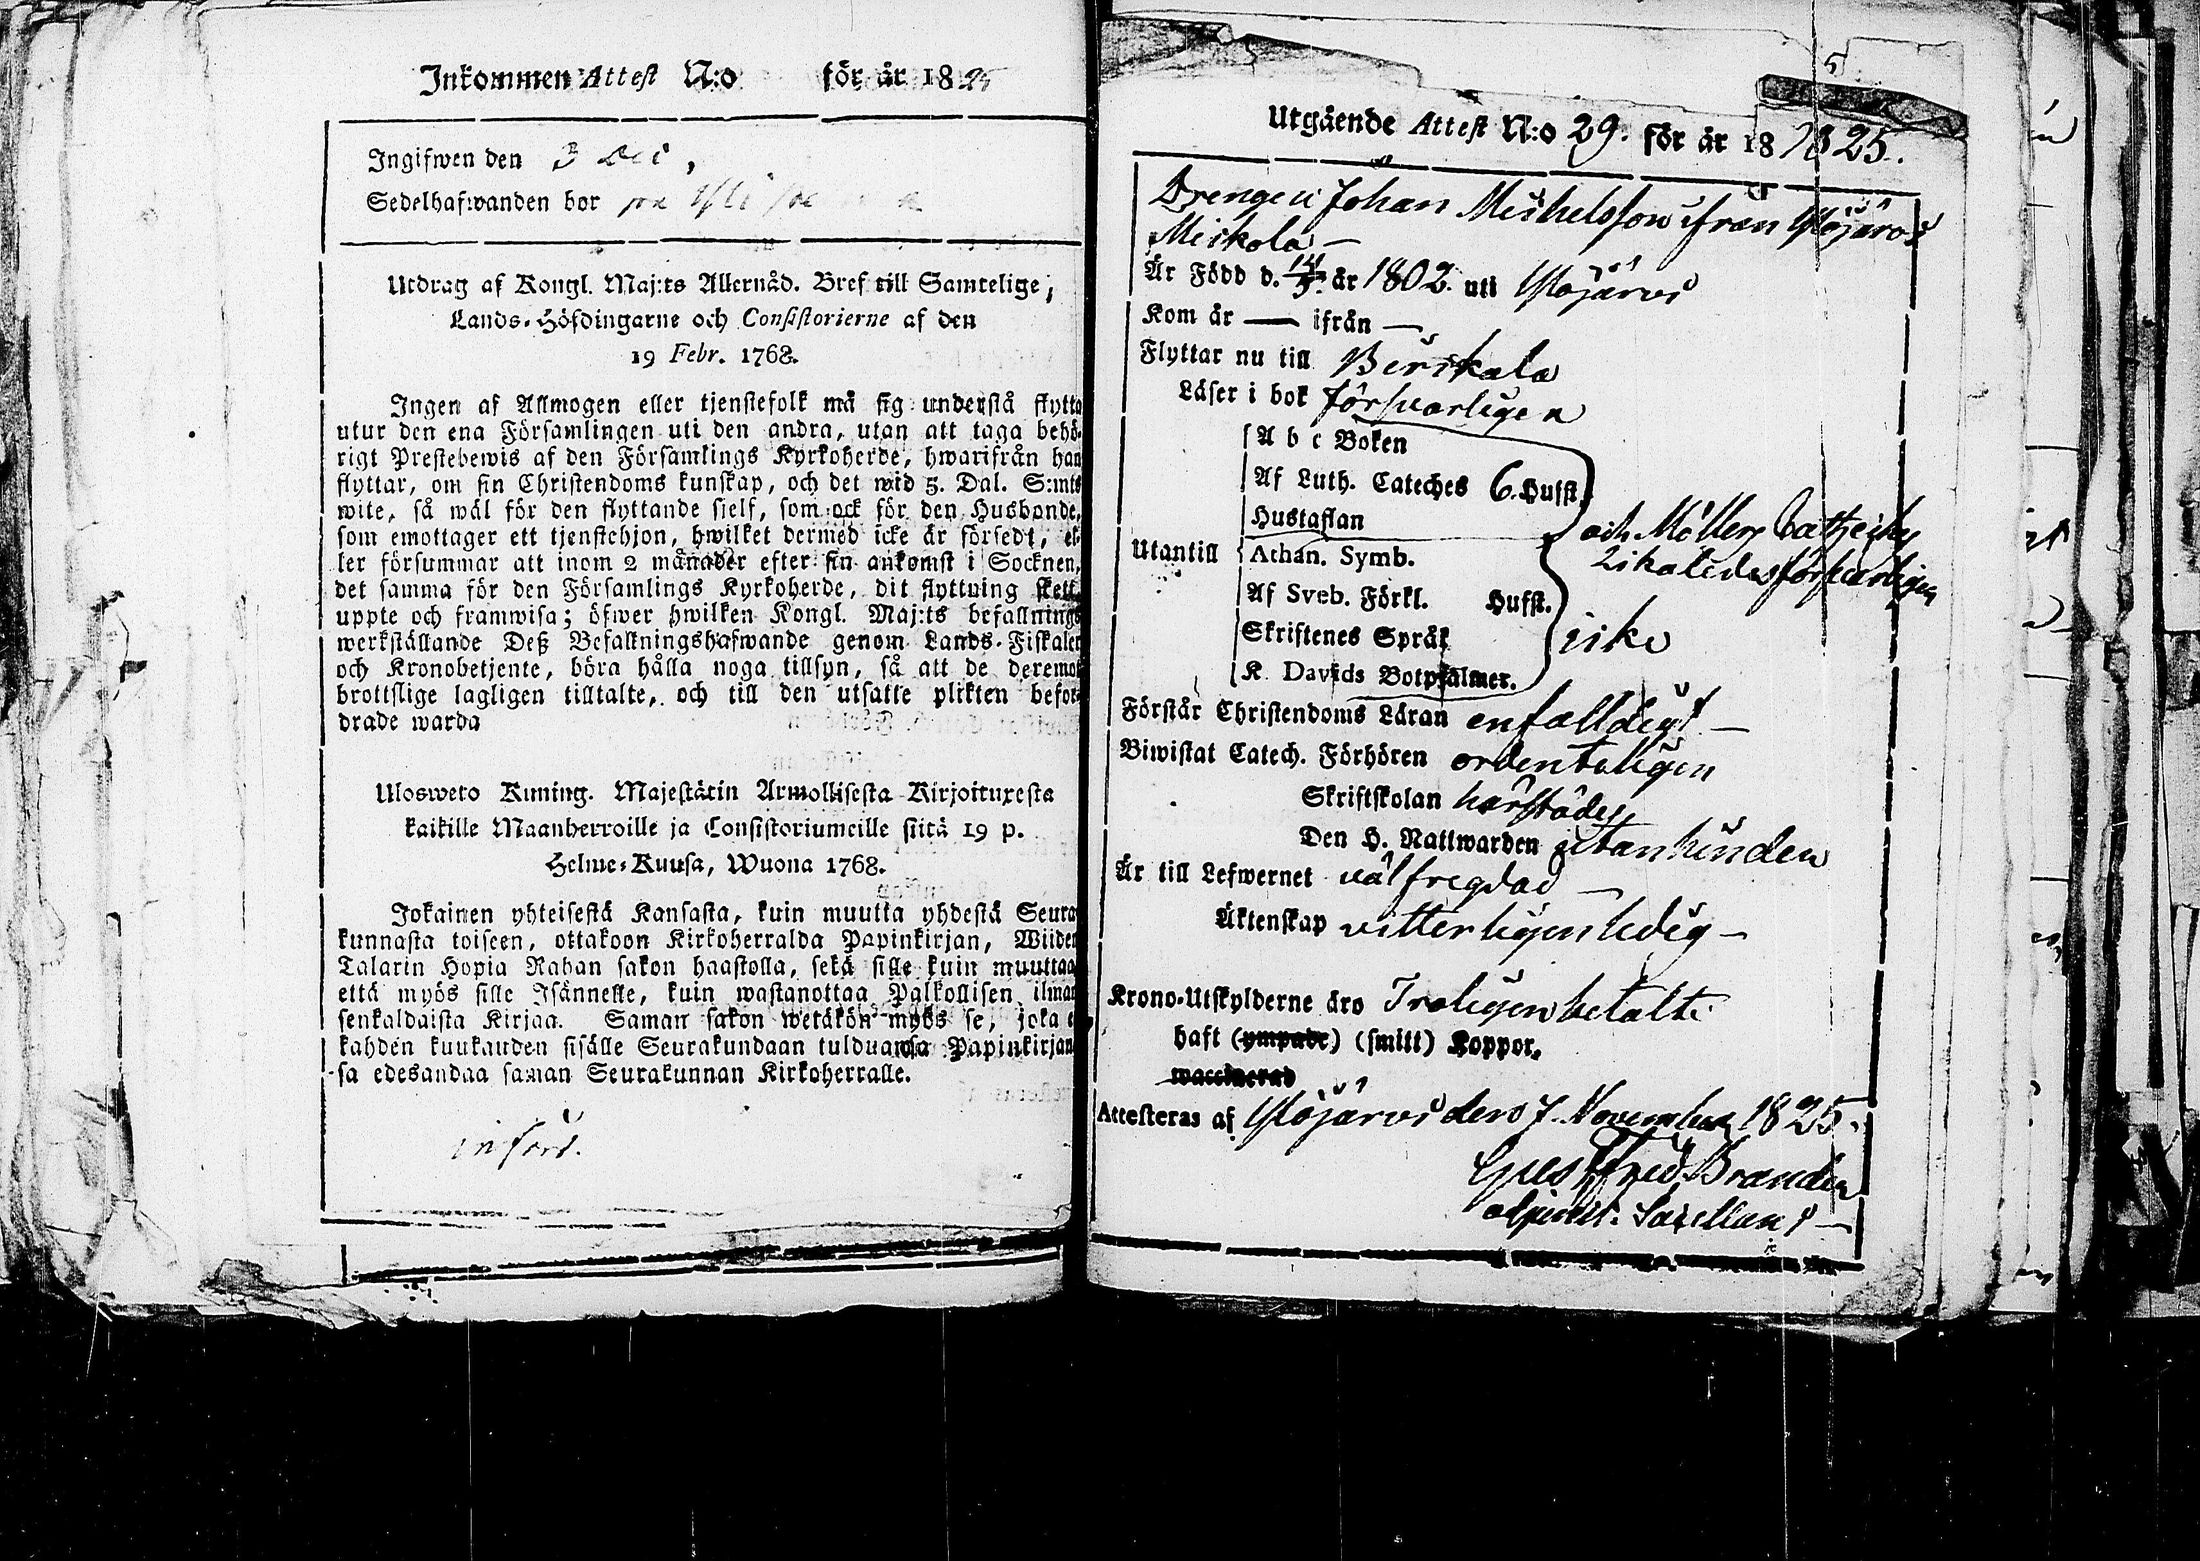 Inkommen Attest N:o för år 1825
Ingifwen den 3 Dec,
Sedelhafwanden bor
Utdrag af Kongl. Maj:ts Allernåd. Bref till Samtelige,
Lands-Höfdingarne och Consistorierne af den
19 Febr. 1768.
Ingen af Allmogen eller tjenstefolk må sig understå flytta
utur den ena Församlingen uti den andra, utan att taga behö-
rigt Prestebewis af den Församlings Kyrkoherde, hwarifrån han
flyttar, om sin Christendoms kunskap, och det wid 5. Dal. S:mts
wite, så wäl för den flyttande sjelf, som ock för den Husbonde,
som emottager ett tjenstehjon, hwilket dermed icke är försedt, el-
ler försummar att inom 2 månader efter sin ankomst i Socknen,
det samma för den Församlings Kyrkoherde, dit flyttning skett,
uppte och framwisa; öfwer hwilken Kongl. Maj:ts befallnings
werkställande Deß Befallningshafwande genom Lands-Fiskaler
och Kronobetjente, böra hålla noga tillsyn, så att de deremot
brottslige lagligen tilltalte, och till den utsatte plikten befor-
drade warda
Ulosweto Kuning. Majestätin Armollisesta Kirjoituxesta
kaikille Maanherroille ja Consistoriumeille siitä 19 p.
Helme-Kuusa, Wuona 1768.
Jokainen yhteisestä Kansasta, kuin muutta yhdestä Seura-
kunnasta toiseen, ottakoon Kirkoherralda Papinkirjan, Wiiden
Talarin Hopia Rahan sakon haastolla, sekä sille kuin muuttaa
että myös sille Isännelle, kuin wastanottaa Palkollisen ilman
senkaldaista Kirjaa. Saman sakon wetäkön myös se, joka e
kahden kuukauden sisälle Seurakundaan tulduansa Papinkirjan-
sa edesandaa saman Seurakunnan Kirkoherralle.
inford.
5
Utgående Attest N:o 29. för år 18 1825.
Drengen Johan Michelsson ifrån Ylöjärvi
Mickola –
Är Född d. 14/5. år 1802. uti Ylöjärvi
Kom år — ifrån —
Flyttar nu till Birckala
Läser i bok försvarligen
A b c Boken
Af Luth. Cateches 6. Hufst.
Hustaflan
och Möllers Catheches
Utantill Athan. Symb.
likaledes försvarligen
Af Sveb. Förkl. Hufst.
Skriftenes Språk icke
K. Davids Botpsalmer.
Förstår Christendoms Läran enfalldigt –
Biwistat Catech. Förhören ordenteligen
Skriftskolan härstädes
Den H. Nattwarden utan hinder
Är till Lefwernet väl fregdad –
Äktenskap vitterligen ledig –
Krono-Utskylderne äro Troligen betalte
haft (ympade) (smitt) Koppor.
waccinerad
Attesteras af Ylöjärvi den 7. November 1825.
Gust. Fred. Brander
adjunct. Sacellani –